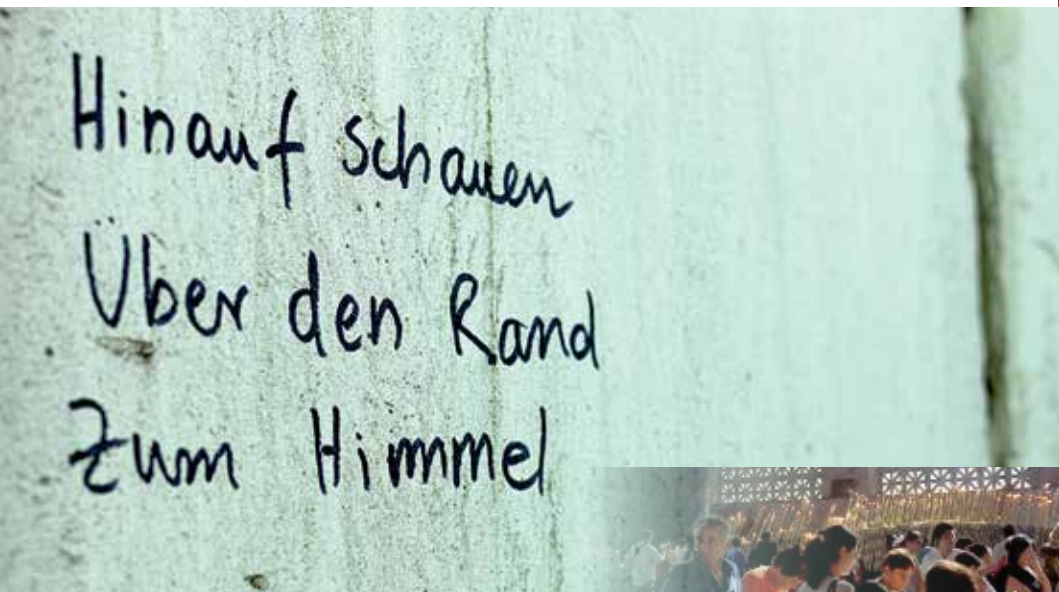 Hinauf schauen
Über den Rand
Zum Himmel